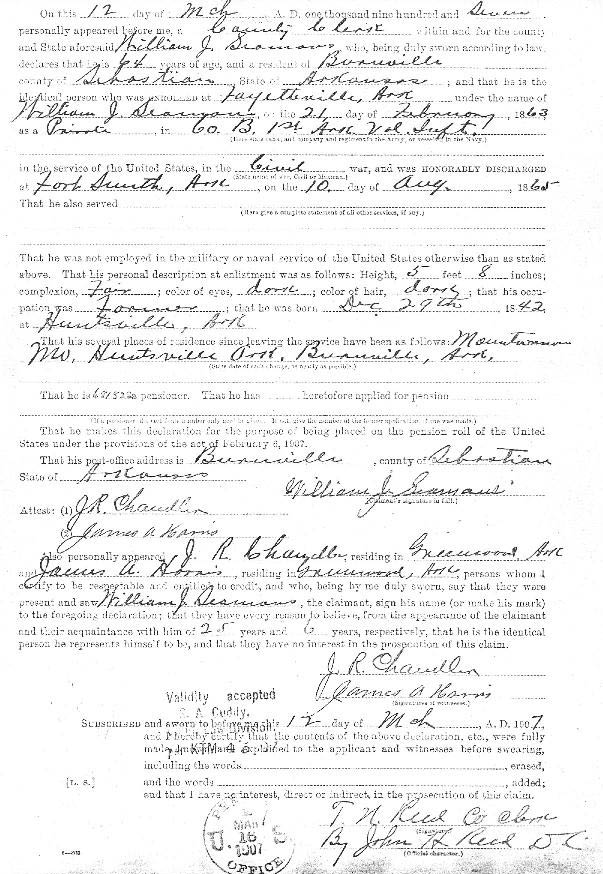 On this 12 day of Mch A. D. one thousand nine hundred and Seven
personally appeared before me, a County Clerk within and for the county
and State aforesaid William J. Seamans who, being duly sworn according to law,
declares that he is 64 years of age, and a resident of Burnville
county of Sebastian, State of Arkansas; and that he is the
identical person who was ENROLLED at Fayetteville, Ark under the name of
William J. Seamans, on the 21 day of February, 1863
as a Private, in Co. B. 1st Ark Vol. Inft.
(Here state rank, and company and regiment in the Army, or vessel if in the Navy.)
in the service of the United States, in the Civil war, and was HONORABLY DISCHARGED
(State name of war, Civil or Mexican.)
at Fort Smith, Ark, on the 10 day of Aug., 1865
That he also served
(Here give a complete statement of all other services, if any.)
That he was not employed in the military or naval service of the United States otherwise than as stated
above. That his personal description at enlistment was as follows: Height, 5 feet 8 inches;
complexion, Fair; color of eyes, dark; color of hair, dark; that his occu-
pation was Farmer; that he was born Dec 29th 1842,
at Huntsville, Ark
That his several places of residence since leaving the service have been as follows:
Mo. Huntsville Ark. Burnville, Ark.
(State date of each change, as nearly as possible.)
That he is a pensioner. That he has heretofore applied for pension
That he makes this declaration for the purpose of being placed on the pension roll of the United
States under the provisions of the act of February 6, 1907.
That his post-office address is Burnville, county of Sebastian
State of Arkansas
William J. Seamans
(Claimant's signature in full.)
Attest: (1) J. R. Chandler
(2) James A Harris
Also personally appeared J. R. Chandler, residing in Greenwood Ark
and James A. Harris, residing in Greenwood, Ark, persons whom I
certify to be respectable and entitled to credit, and who, being by me duly sworn, say that they were
present and saw William J. Seamans, the claimant, sign his name (or make his mark)
to the foregoing declaration; that they have every reason to believe, from the appearance of the claimant
and their acquaintance with him of 25 years and 6 years, respectively, that he is the identical
person he represents himself to be, and that they have no interest in the prosecution of this claim.
J. R. Chandler
James A Harris
(Signatures of witnesses.)
Validity accepted
SUBSCRIBED and sworn to before me this 12 day of Mch, A. D. 1907,
and I hereby certify that the contents of the above declaration, etc., were fully
made known and explained to the applicant and witnesses before swearing,
including the words, erased,
[L. S.] and the words, added;
and that I have no interest, direct or indirect, in the prosecution of this claim.
T. N. Reed Co Clerk
(Signature.)
By John L Reed D C
(Official character.)
U. S.
MAR
16
1907
OFFICE